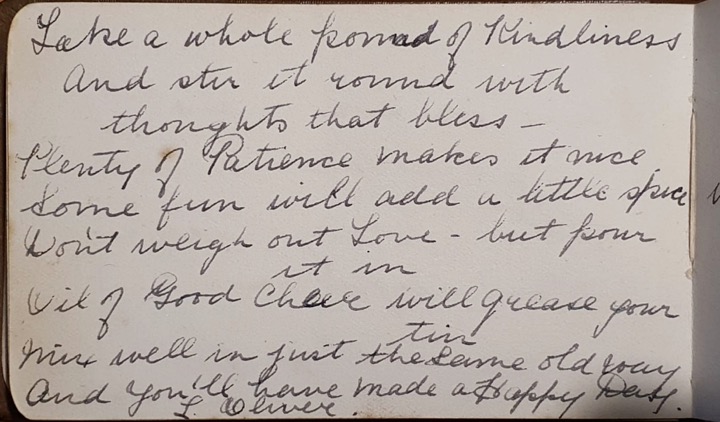 Take a whole pound of Kindliness
And stir it round with
thoughts that bless -
Plenty of Patience makes it nice
Some fun will add a little spice
Don't weigh out Love - but pour
it in
Oil of Good Cheer will grease your
tin
Mix well in just the same old way
And you'll have made a Happy Day.
L Oliver.